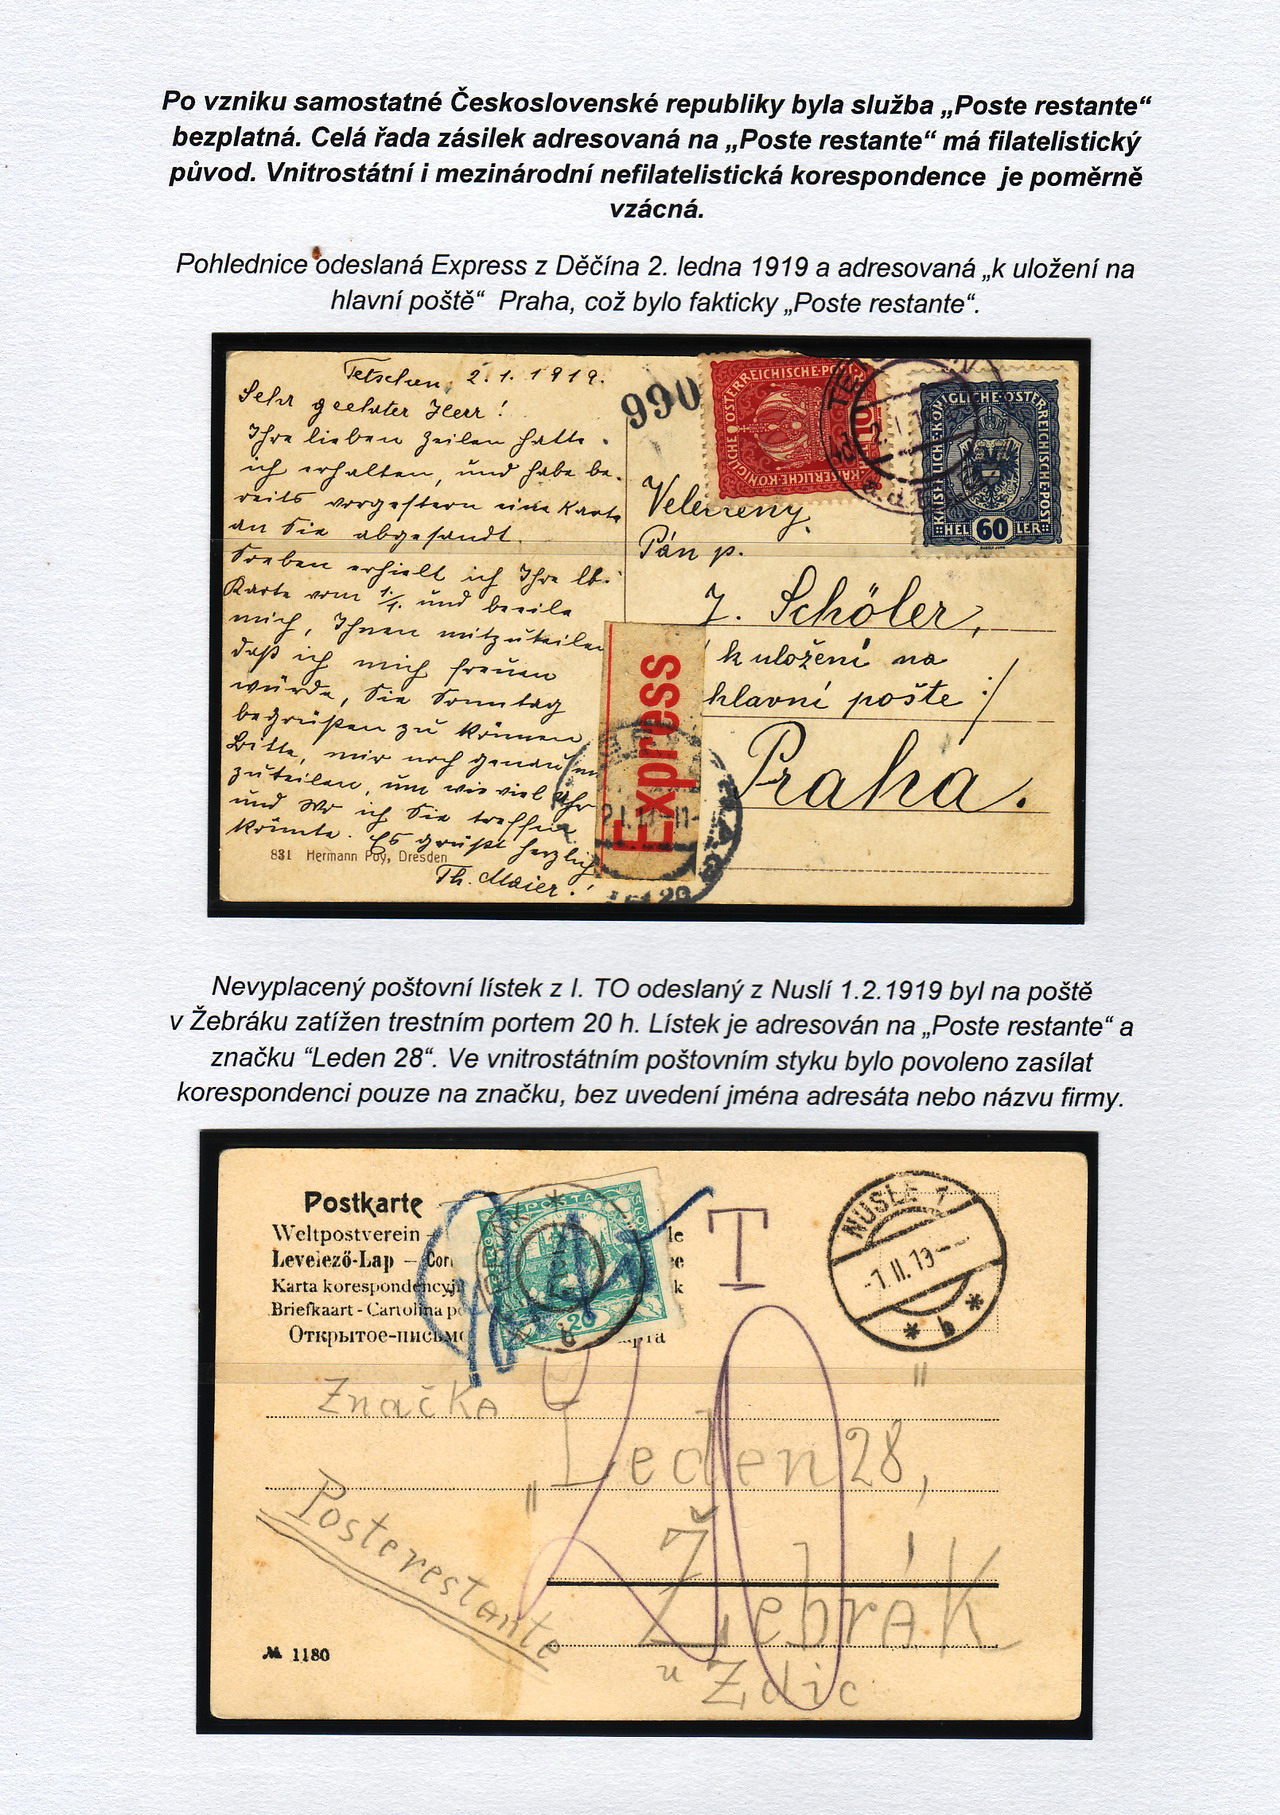 Po vzniku samostatné Československé republiky byla služba „Poste restante“
bezplatná. Celá řada zásilek adresovaná na „Poste restante“ má filatelistický
původ. Vnitrostátní i mezinárodní nefilatelistická korespondence je poměrně
vzácná.
Pohlednice odeslaná Express z Děčína 2. ledna 1919 a adresovaná „k uložení na
hlavní poště“ Praha, což bylo fakticky „Poste restante“.
Tetschen, 2.1.1919.
Sehr geehrter Herr!
Ihre lieben Zeilen hatte
ich erhalten, und habe be-
reits vorgestern eine Karte
an Sie abgesandt.
Soeben erhielt ich Ihre lb.
Karte vom 1./1. und beeile
mich, Ihnen mitzuteilen
daß ich mich freuen
würde, Sie Sonntag
begrüßen zu können
Bitte, mir noch genau m
zuteilen, um wie viel Uhr
und wo ich Sie treffen
könnte. Es grüßt herzlich
Th. Maier!
831 Hermann Poy, Dresden
990
KAISERLICHE KÖNIGLICHE ÖSTERREICHISCHE POST
KAISERLICHE KÖNIGLICHE ÖSTERREICHISCHE POST
HELLER 60
2.I.
Pán p.
J. Schöler,
k uložení na
hlavní poště :/
Praha.
Express
Nevyplacený poštovní lístek z I. TO odeslaný z Nuslí 1.2.1919 byl na poště
v Žebráku zatížen trestním portem 20 h. Lístek je adresován na „Poste restante“ a
značku “Leden 28“. Ve vnitrostátním poštovním styku bylo povoleno zasílat
korespondenci pouze na značku, bez uvedení jména adresáta nebo názvu firmy.
Postkarte
Weltpostverein –
Levelező-Lap – Cor
Karta korespondencyj
Briefkaart - Cartolina po
Открытое-письмо
POŠTA
20
T
NUSLE 1
-1.II.19-
* b *
Značka
„Leden 28,"
Poste restante
20
Žebrák
u Zdic
№ 1180